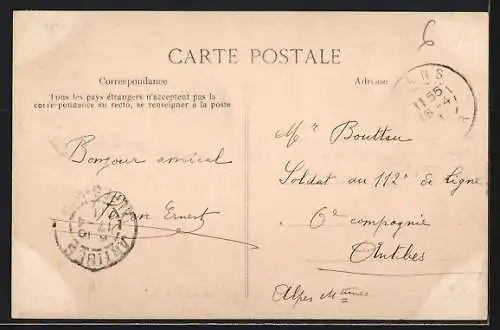 6
CARTE POSTALE
Correspondance
Tous les pays étrangers n'acceptent pas la
correspondance au recto, se renseigner à la poste
Adresse
11 55
Bonjour amical
Ernest
ANTIBES
Mr Bouttau
Soldat du 112e de Ligne
6e compagnie
Antibes
Alpes Mtimes